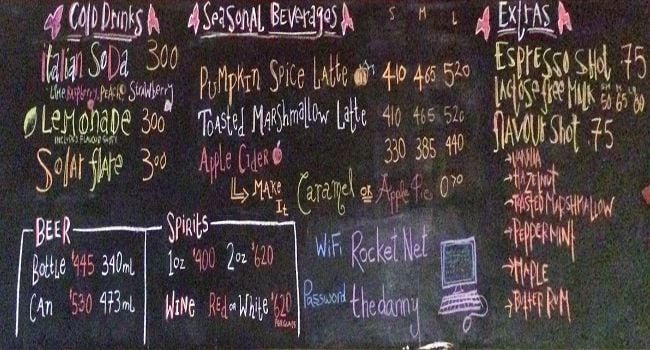 Cold Drinks
Italian Soda 300
Lime Raspberry, Peach, Strawberry
Lemonade 300
INCLUDES FLAVOUR SHOT
Solar flare 300
Seasonal Beverages S M L
Pumpkin Spice Latte 410 465 520
Toasted Marshmallow Latte 410 465 520
Apple Cider 330 385 440
Make It Caramel or Apple Pie 070
Extras
Espresso Shot .75
lactose free Milk .50 .65 .80
flavour Shot .75
Vanilla
Hazelnut
Toasted Marshmallow
Peppermint
Maple
Butter Rum
BEER
Bottle $445 340ml
Can $530 473ml
Spirits
1oz $400 2oz $620
Wine Red or White $620
PER GLASS
WiFi Rocket Net
Password thedanny